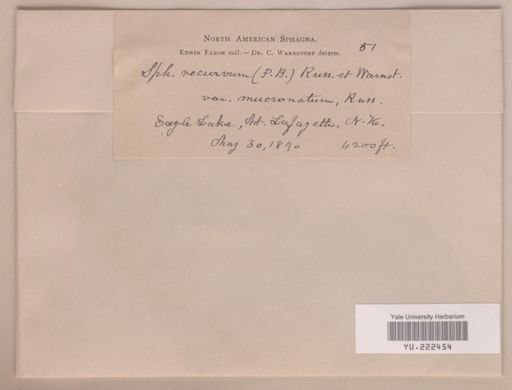 North American Sphagna.
51
Edwin Faxon coll. — Dr. C. Warnstorf determ.
Sph. recurvum (P.B.) Russ. et Warnst.
var. mucronatum, Russ.
Eagle Lake, Mt. Lafayette. N.H.
May 30, 1890 4200 ft.
Yale University Herbarium
YU.222454